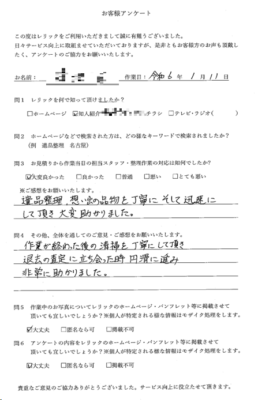 お客様アンケート
この度はレリックをご利用いただきまして誠に有難うございました。
日々サービス向上に取組ませていただいておりますが、是非ともお客様のお声も戴戴したく、アンケートのご協力をお願いいたします。
お名前： 作業日：令和6年1月11日
問1 レリックを何で知って頂けましたか？
□ホームページ ☑知人紹介 チラシ □テレビ・ラジオ( )
問2 ホームページなどで検索された方は、どの様なキーワードで検索されましたか？
(例 遺品整理 名古屋)
問3 お見積りから作業当日の担当スタッフ・整理作業の対応は如何でしたか？
☑大変良かった □良かった □普通 □悪い □とても悪い
※ご感想をお願いいたします。
遺品整理、想い出の品物も丁寧に そして迅速に
して頂き大変助かりました。
問4 その他、全体を通してのご意見・ご感想をお願いいたします。
作業が終わった後の清掃も丁寧にして頂き
退去の査定に立ち会った時 円滑に進み
非常に助かりました。
問5 作業中のお写真についてレリックのホームページ・パンフレット等に掲載させて
頂いても宜しいでしょうか？※個人が特定される様な情報はモザイク処理をします。
☑大丈夫 □匿名なら可 □掲載不可
問6 アンケートの内容をレリックのホームページ・パンフレット等に掲載させて
頂いても宜しいでしょうか？※個人が特定される様な情報はモザイク処理をします。
☑大丈夫 □匿名なら可 □掲載不可
貴重なご意見のご協力ありがとうございました。サービス向上に役立たせて頂きます。